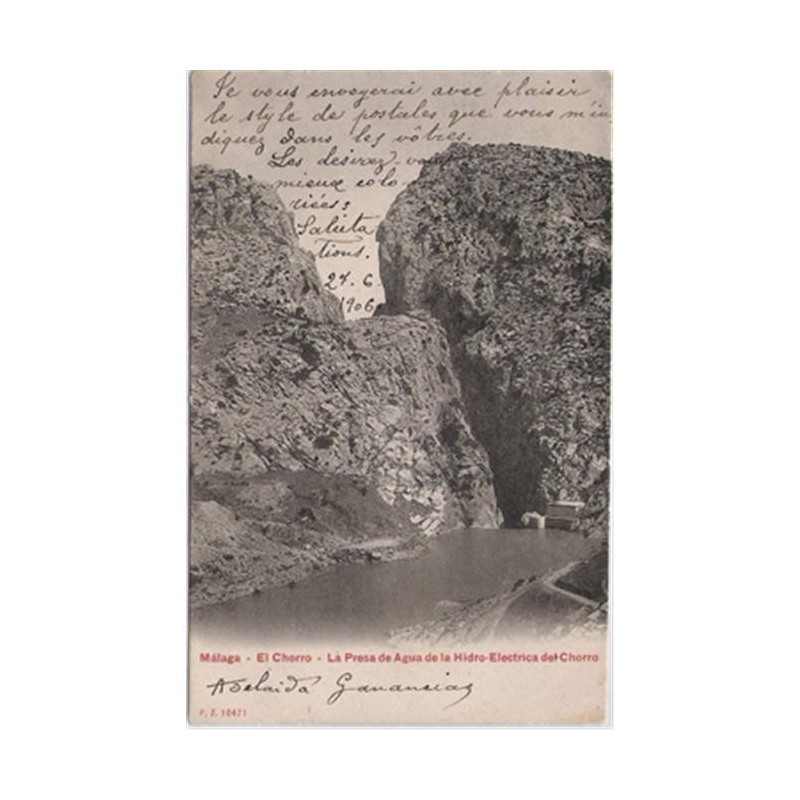 Je vous envoyerai avec plaisir
le style de postales que vous m'in
diquez dans les vôtres.
Les desirez-vous
mieux colo
riées?
Saluta
tions.
27. 6.
1906
Málaga - El Chorro - La Presa de Agua de la Hidro-Electrica del Chorro
Adelaida Ganancias
P. Z. 10471